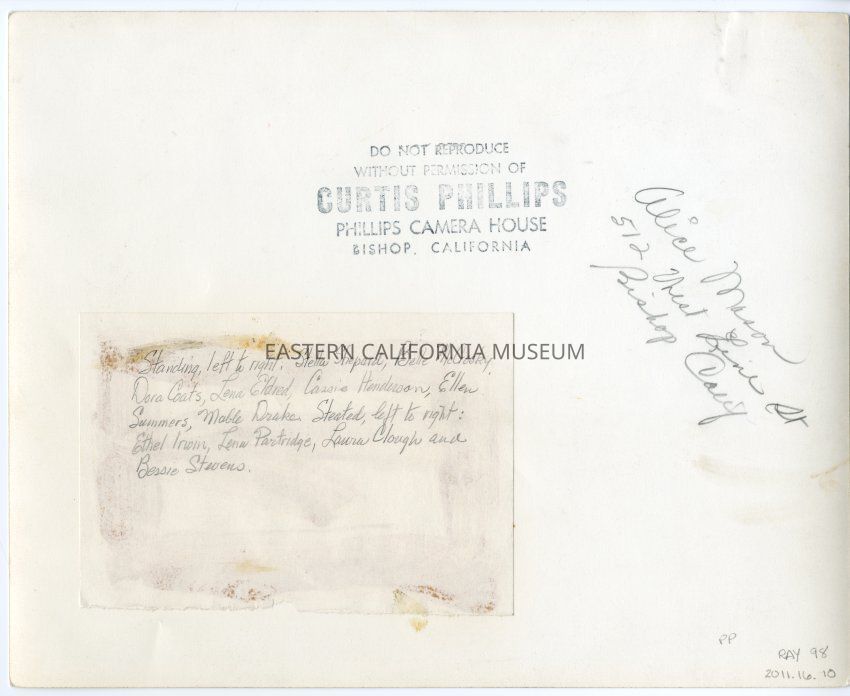 DO NOT REPRODUCE
WITHOUT PERMISSION OF
CURTIS PHILLIPS
PHILLIPS CAMERA HOUSE
BISHOP, CALIFORNIA
Alice Mason
512 West Line St
Bishop Calif
EASTERN CALIFORNIA MUSEUM
Standing, left to right: Stella
Dora Coats, Lena Eldred, Cassie Henderson, Ellen
Summers, Mable Drake. Steated, left to right:
Ethel Irwin, Lena Partridge, Laura Clough and
Bessie Stevens.
PP
RAY 98
2011.16.10